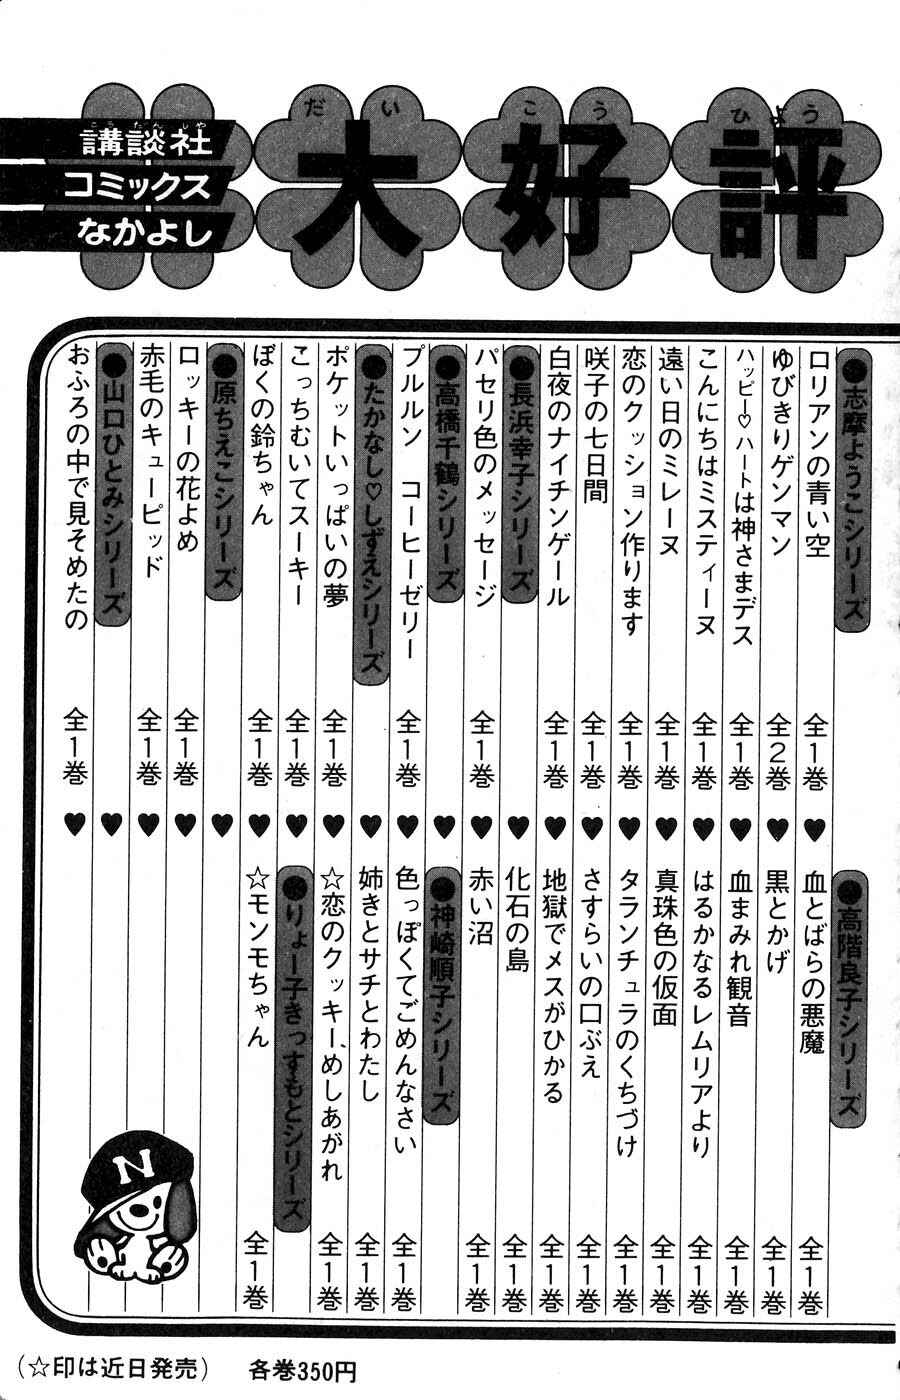 講談社
コミックス
なかよし
大好評
だいこうひょう
●志摩ようこシリーズ
ロリアンの青い空 全1巻
ゆびきりゲンマン 全2巻
ハッピー♡ハートは神さまデス 全1巻
こんにちはミスティーヌ 全1巻
遠い日のミレーヌ 全1巻
恋のクッション作ります 全1巻
咲子の七日間 全1巻
白夜のナイチンゲール 全1巻
●長浜幸子シリーズ
パセリ色のメッセージ 全1巻
●高橋千鶴シリーズ
プルルン コーヒーゼリー 全1巻
●たかなし♡しずえシリーズ
ポケットいっぱいの夢 全1巻
こっちむいてスーキー 全1巻
ぼくの鈴ちゃん 全1巻
●原ちえこシリーズ
ロッキーの花よめ 全1巻
赤毛のキューピッド 全1巻
●山口ひとみシリーズ
おふろの中で見そめたの 全1巻
●高階良子シリーズ
血とばらの悪魔 全1巻
黒とかげ 全1巻
血まみれ観音 全1巻
はるかなるレムリアより 全1巻
真珠色の仮面 全1巻
タランチュラのくちづけ 全1巻
さすらいの口ぶえ 全1巻
地獄でメスがひかる 全1巻
化石の島 全1巻
赤い沼 全1巻
●神崎順子シリーズ
色っぽくてごめんなさい 全1巻
姉きとサチとわたし 全1巻
☆恋のクッキー、めしあがれ 全1巻
●りょー子きっすもとシリーズ
☆モンモちゃん 全1巻
N
(☆印は近日発売) 各巻350円